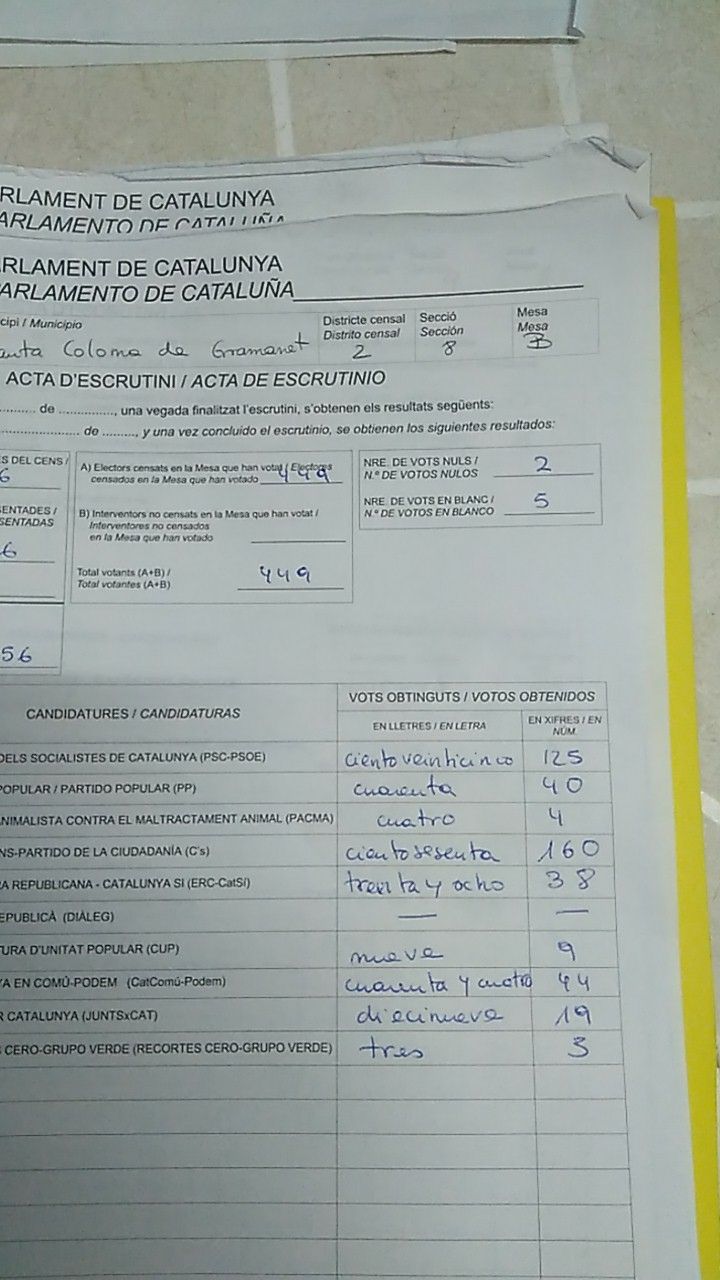 RLAMENT DE CATALUNYA
ARLAMENTO DE CATALUÑA
RLAMENT DE CATALUNYA
ARLAMENTO DE CATALUÑA
cipi / Municipio
anta Coloma de Gramanet
Districte censal
Distrito censal
2
Secció
Sección
8
Mesa
Mesa
B
ACTA D'ESCRUTINI / ACTA DE ESCRUTINIO
......... de .............., una vegada finalitzat l'escrutini, s'obtenen els resultats següents:
................... de ........., y una vez concluido el escrutinio, se obtienen los siguientes resultados:
S DEL CENS /
6
ENTADES /
SENTADAS
6
56
A) Electors censats en la Mesa que han votat / Electores
censados en la Mesa que han votado 449
B) Interventors no censats en la Mesa que han votat /
Interventores no censados
en la Mesa que han votado
Total votants (A+B) /
Total votantes (A+B)
449
NRE. DE VOTS NULS /
N.º DE VOTOS NULOS
2
NRE. DE VOTS EN BLANC /
N.º DE VOTOS EN BLANCO
5
CANDIDATURES / CANDIDATURAS
VOTS OBTINGUTS / VOTOS OBTENIDOS
EN LLETRES / EN LETRA
EN XIFRES / EN
NÚM.
DELS SOCIALISTES DE CATALUNYA (PSC-PSOE) cientoveinticinco 125
POPULAR / PARTIDO POPULAR (PP) cuarenta 40
NIMALISTA CONTRA EL MALTRACTAMENT ANIMAL (PACMA) cuatro 4
NS-PARTIDO DE LA CIUDADANÍA (C's) cientosesenta 160
RA REPUBLICANA - CATALUNYA SI (ERC-CatSí) treinta y ocho 38
EPUBLICÀ (DIÀLEG) — —
TURA D'UNITAT POPULAR (CUP) nueve 9
YA EN COMÚ-PODEM (CatComú-Podem) cuarenta y cuatro 44
R CATALUNYA (JUNTSxCAT) diecinueve 19
S CERO-GRUPO VERDE (RECORTES CERO-GRUPO VERDE) tres 3